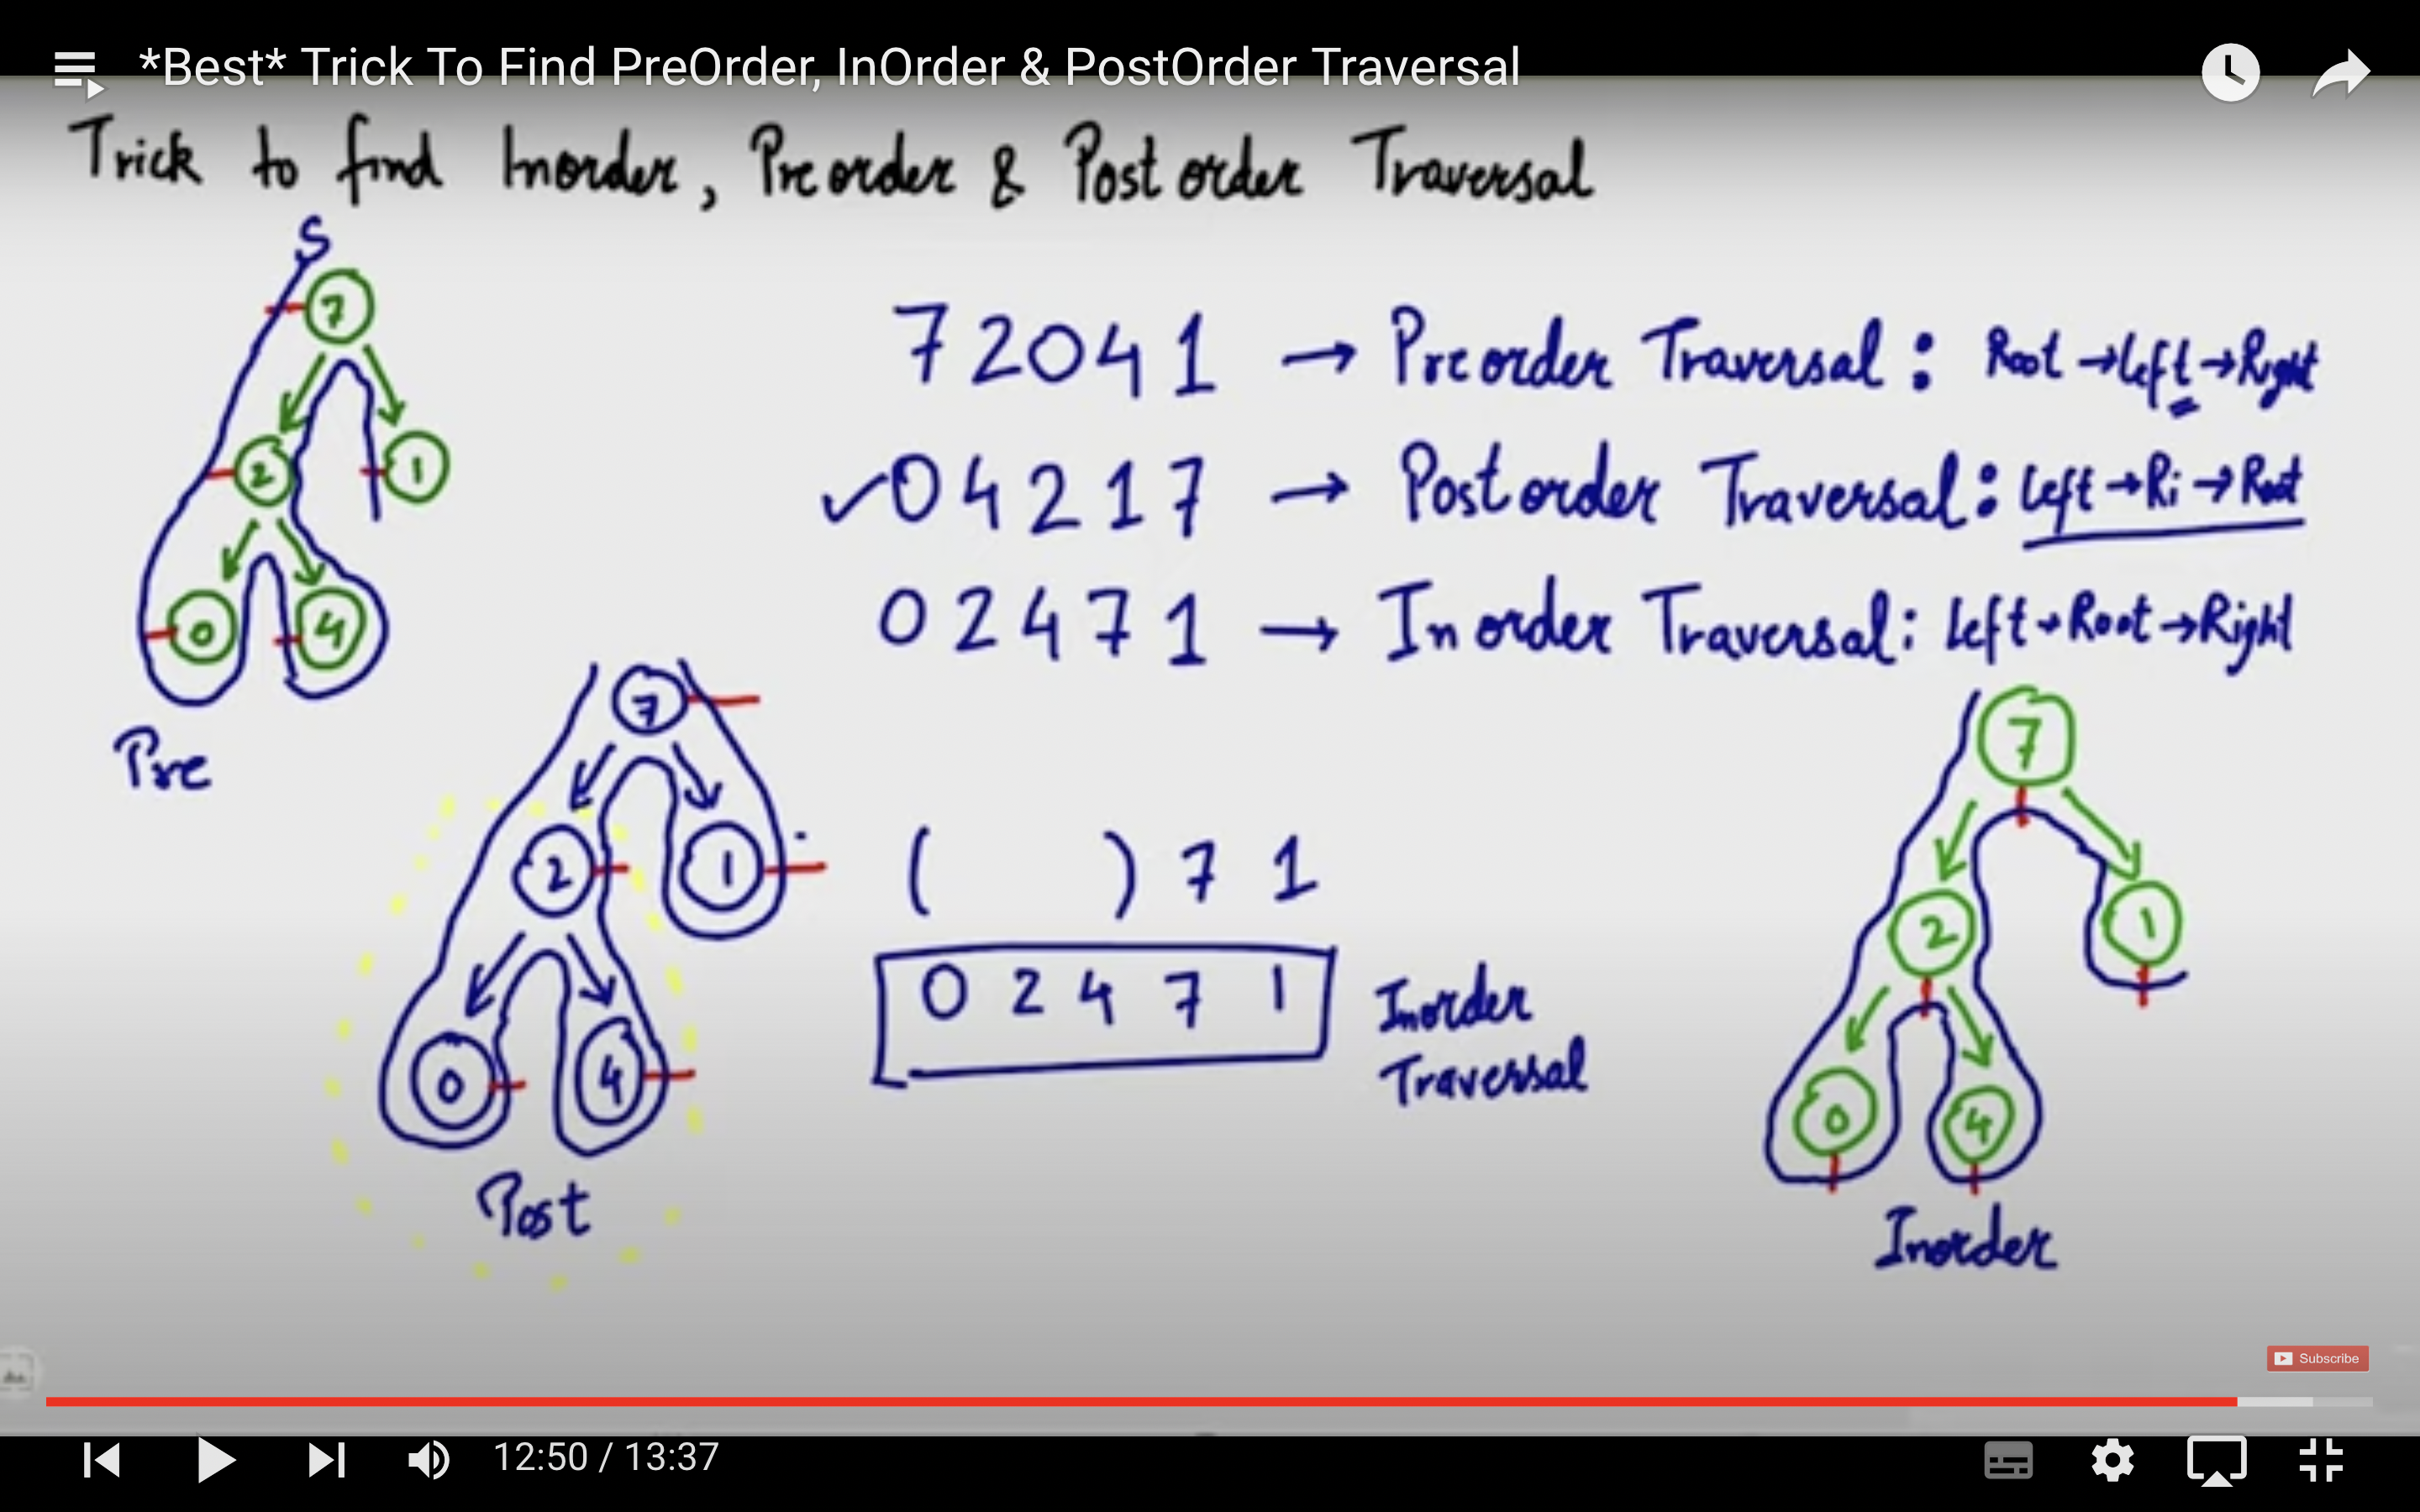 *Best* Trick To Find PreOrder, InOrder & PostOrder Traversal
Trick to find Inorder, Preorder & Postorder Traversal
S
7
2 1
0 4
Pre
7 2 0 4 1 → Preorder Traversal : Root → Left → Right
✓ 0 4 2 1 7 → Postorder Traversal : Left → Ri → Root
0 2 4 7 1 → Inorder Traversal : Left → Root → Right
7
2 1
0 4
Post
( ) 7 1
0 2 4 7 1
Inorder
Traversal
7
2 1
0 4
Inorder
Subscribe
12:50 / 13:37